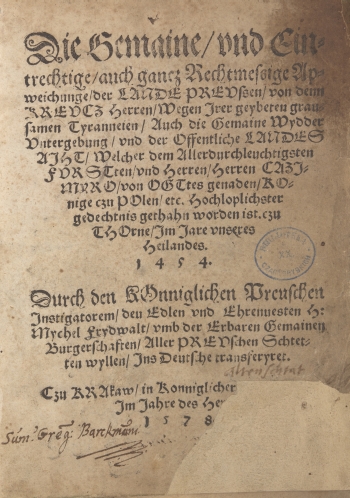 Die Gemaine/ vnd Ein-
trechtige/ auch gancz Rechtmessige Ap-
weichunge/ der LANDE PREVssen/ von dem
KREVCZ Herren/ Wegen Jrer geybeten grau
samen Tyranneien/ Auch die Gemaine Wydder
Vntergebung/ vnd der Offentliche LANDES
AIHT/ Welcher dem Allerdurchleuchtigsten
FVRSTten/ vnd Herren/ Herren CAZI-
MIRO/ von OGTtes genaden/ KO-
nige czu POlen/ etc. Hochloplichster
gedechtnis gethahn worden ist. czu
THOrne/ Im Jare vnseres
Heilandes.
1454.
Durch den KOnniglichen Preuschen
Instigatorem/ den Edlen vnd Ehrenuesten H:
Mychel Frydwalt/ vmb der Erbaren Gemainen
Burgerschaften/ Aller PREVschen Schtet-
ten wyllen/ Ins Deutsche transferyret.
Czu KRAkaw/ in Konniglicher
Im Jahre des He
1578
Sum Greg: Barckmani